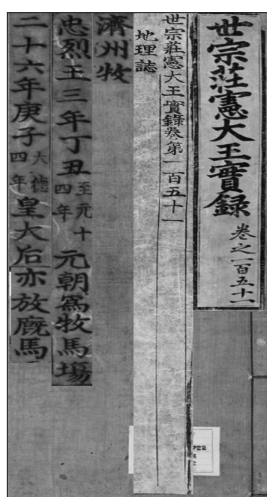 世宗莊憲大王實錄 卷之一百五十一
世宗莊憲大王實錄卷第一百五十一
地理誌
濟州牧
忠烈王三年丁丑 至元十四年 元朝爲牧馬場
二十六年庚子 大德四年 皇大后亦放廐馬